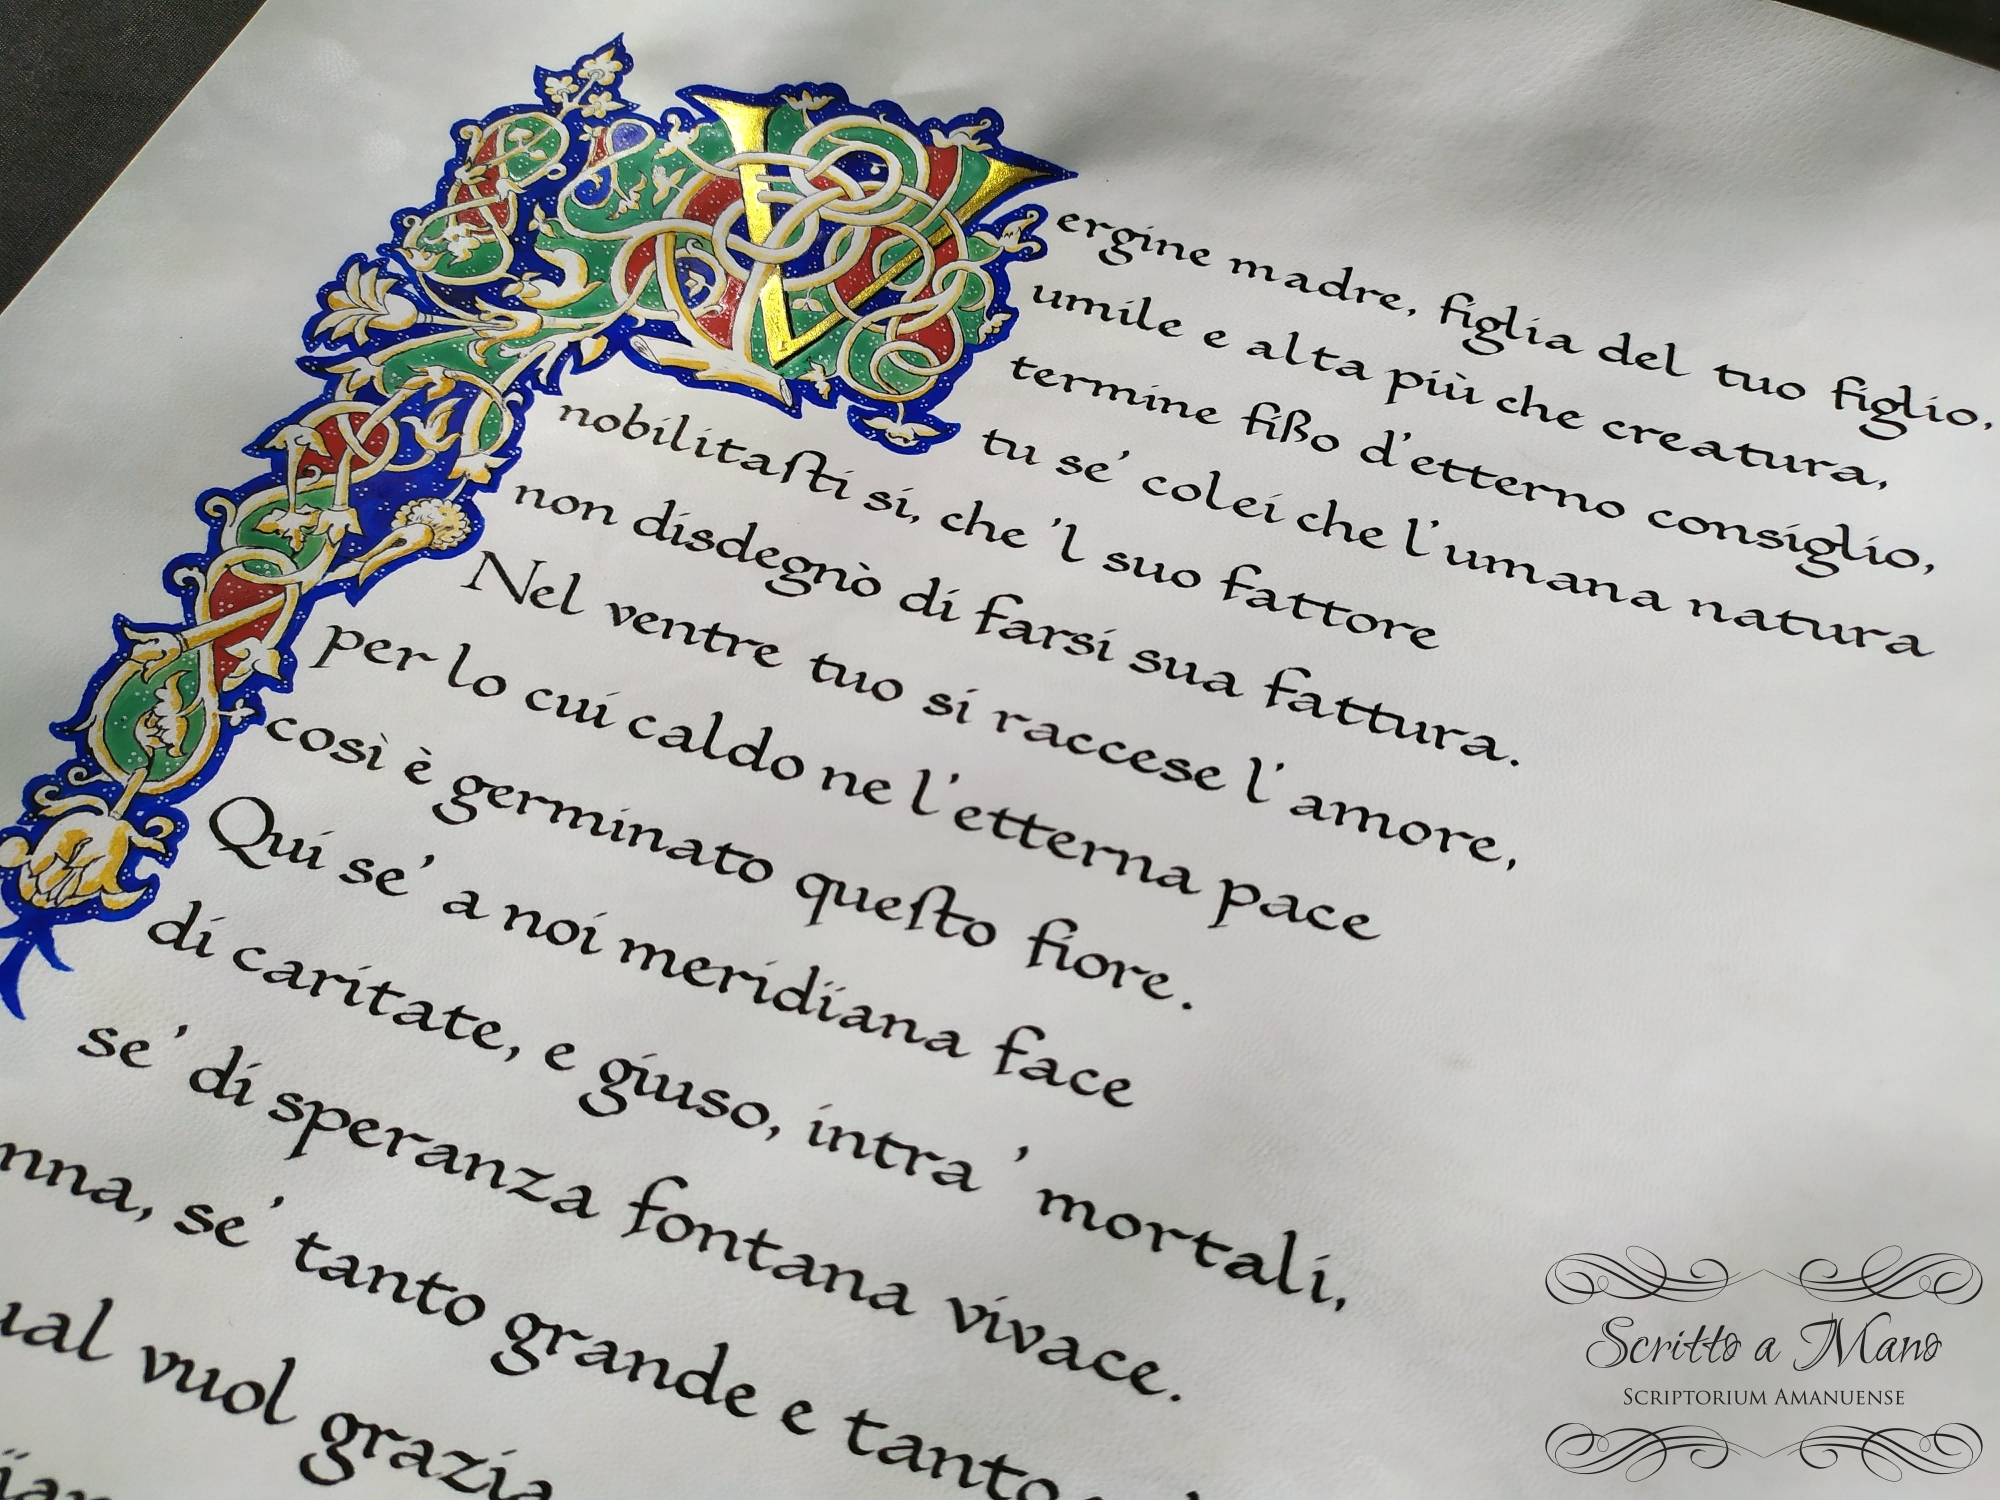 Vergine madre, figlia del tuo figlio,
umile e alta più che creatura,
termine fißo d'etterno consiglio,
tu se' colei che l'umana natura
nobilitaſti sì, che 'l suo fattore
non disdegnò di farsi sua fattura.
Nel ventre tuo si raccese l'amore,
per lo cui caldo ne l'etterna pace
così è germinato queſto fiore.
Qui se' a noi meridïana face
di caritate, e giuso, intra ' mortali,
se' di speranza fontana vivace.
nna, se' tanto grande e tanto
ual vuol grazia
Scritto a Mano
SCRIPTORIUM AMANUENSE